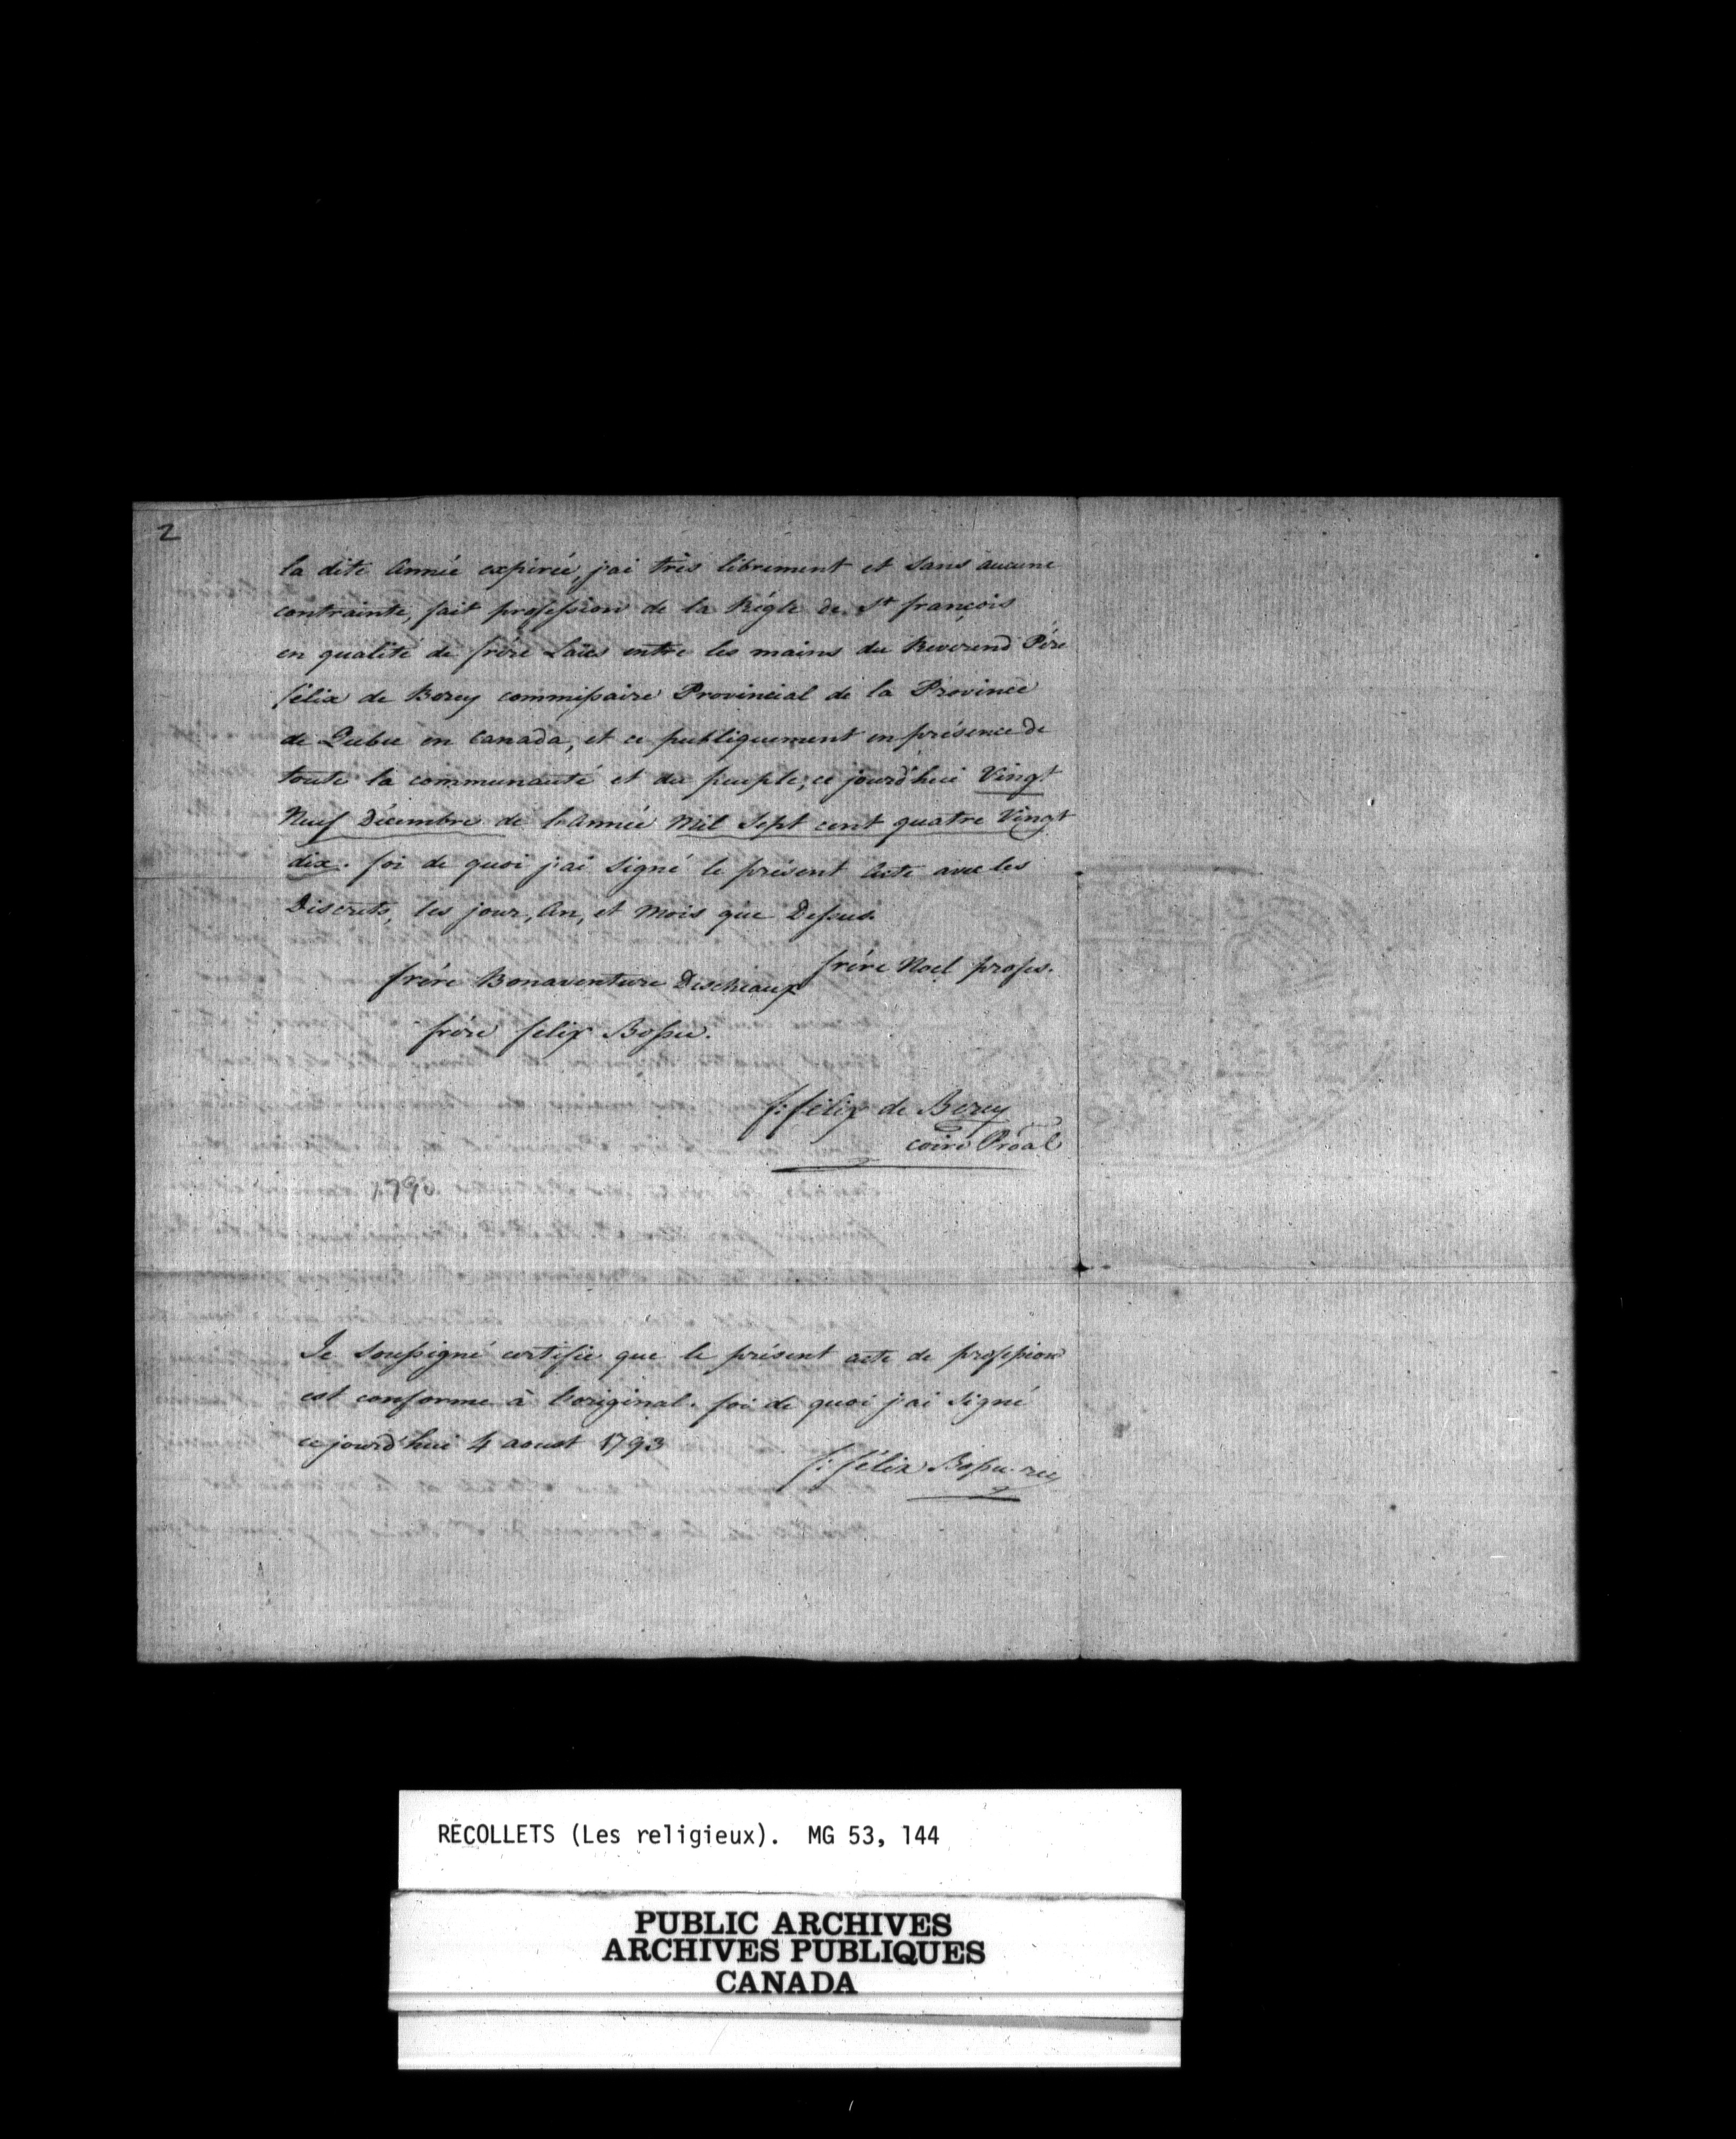 2
la dite Année expirée, j'ai très librement et sans aucune
contrainte, fait profession de la Régle de St françois
en qualité de frére Laïcs entre les mains du Reverend Pére
félix de Berey commissaire Provincial de la Province
de Quebec en Canada, et ce publiquement en présence de
toute la communauté et du peuple; ce jourd'hui Vingt
Neuf Décembre de l'année Mil Sept cent quatre Vingt
dix. foi de quoi j'ai Signé le présent Acte avec les
Discrets, les jour, An, et Mois que Dessus.
frére Noel profes.
frére Bonaventure Descheaux
frére felix Bossu.
f: félix de Berey
coire Proal
1790.
Je Soussigné certifie que le présent acte de profession
est conforme à l'original. foi de quoi j'ai Signé
ce jourd'hui 4 aoust 1793
f: félix Bossu. rec
RÉCOLLETS (Les religieux). MG 53, 144
PUBLIC ARCHIVES
ARCHIVES PUBLIQUES
CANADA